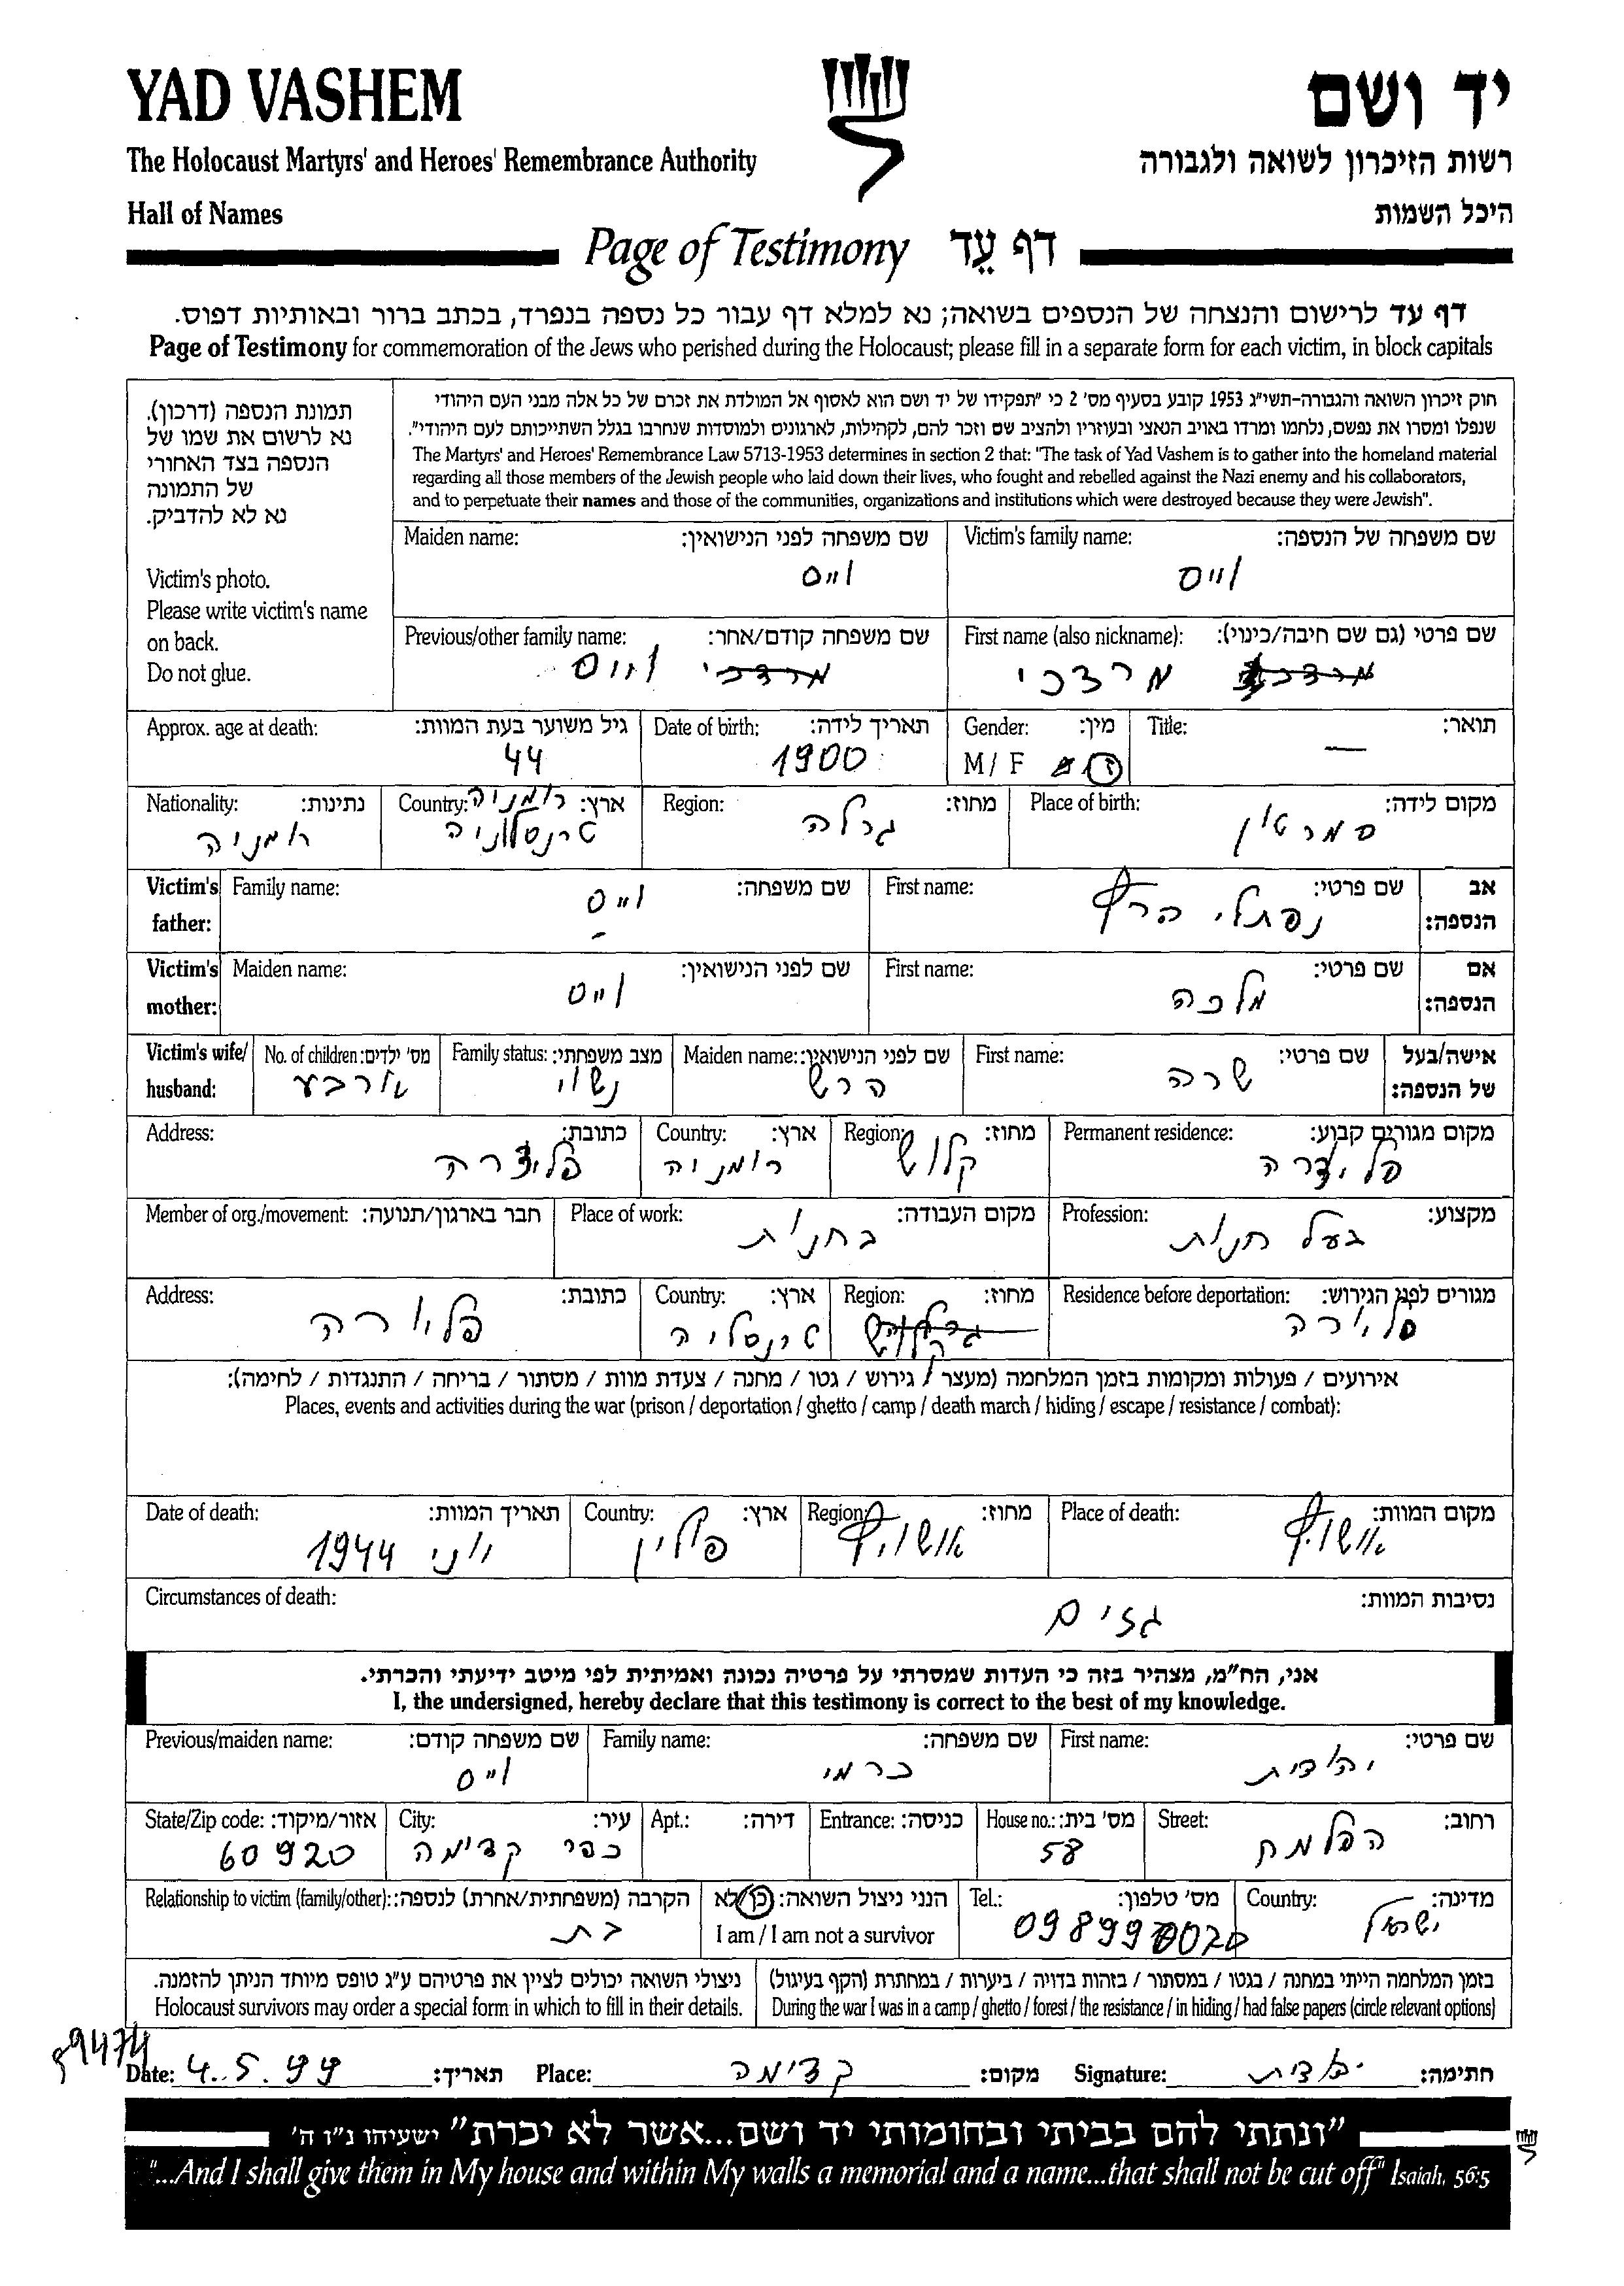 YAD VASHEM
יד ושם
The Holocaust Martyrs' and Heroes' Remembrance Authority
רשות הזיכרון לשואה ולגבורה
Hall of Names
היכל השמות
Page of Testimony דף עֵד
דף עד לרישום והנצחה של הנספים בשואה; נא למלא דף עבור כל נספה בנפרד, בכתב ברור ובאותיות דפוס.
Page of Testimony for commemoration of the Jews who perished during the Holocaust; please fill in a separate form for each victim, in block capitals
תמונת הנספה (דרכון).
נא לרשום את שמו של
הנספה בצד האחורי
של התמונה
נא לא להדביק.
Victim's photo.
Please write victim's name
on back.
Do not glue.
חוק זיכרון השואה והגבורה-תשי"ג 1953 קובע בסעיף מס' 2 כי "תפקידו של יד ושם הוא לאסוף אל המולדת את זכרם של כל אלה מבני העם היהודי
שנפלו ומסרו את נפשם, נלחמו ומרדו באויב הנאצי ובעוזריו ולהציב שם וזכר להם, לקהילות, לארגונים ולמוסדות שנחרבו בגלל השתייכותם לעם היהודי".
The Martyrs' and Heroes' Remembrance Law 5713-1953 determines in section 2 that: "The task of Yad Vashem is to gather into the homeland material
regarding all those members of the Jewish people who laid down their lives, who fought and rebelled against the Nazi enemy and his collaborators,
and to perpetuate their names and those of the communities, organizations and institutions which were destroyed because they were Jewish".
Victim's family name: שם משפחה של הנספה:
וייס
Maiden name: שם משפחה לפני הנישואין:
וייס
First name (also nickname): שם פרטי (גם שם חיבה/כינוי):
מרדכי
Previous/other family name: שם משפחה קודם/אחר:
מרדכי וייס
Title: תואר:
—
Gender: מין:
M / F ז
Date of birth: תאריך לידה:
1900
Approx. age at death: גיל משוער בעת המוות:
44
Place of birth: מקום לידה:
סמרטין
Region: מחוז:
גרלה
Country: ארץ: רומניה
טרנסלווניה
Nationality: נתינות:
רומניה
Victim's father: אב הנספה:
First name: שם פרטי:
נפתלי הרץ
Family name: שם משפחה:
וייס
Victim's mother: אם הנספה:
First name: שם פרטי:
מלכה
Maiden name: שם לפני הנישואין:
וייס
Victim's wife/ husband: אישה/בעל של הנספה:
First name: שם פרטי:
שרה
Maiden name: שם לפני הנישואין:
הרש
Family status: מצב משפחתי:
נשוי
No. of children: מס' ילדים:
ארבע
Permanent residence: מקום מגורים קבוע:
Region: מחוז:
קלוש
Country: ארץ:
רומניה
Address: כתובת:
Profession: מקצוע:
בעל חנות
Place of work: מקום העבודה:
בחנות
Member of org./movement: חבר בארגון/תנועה:
Residence before deportation: מגורים לפני הגירוש:
Region: מחוז:
Country: ארץ:
Address: כתובת:
אירועים / פעולות ומקומות בזמן המלחמה (מעצר / גירוש / גטו / מחנה / צעדת מוות / מסתור / בריחה / התנגדות / לחימה):
Places, events and activities during the war (prison / deportation / ghetto / camp / death march / hiding / escape / resistance / combat):
Place of death: מקום המוות:
אושויץ
Region: מחוז:
אושויץ
Country: ארץ:
פולין
Date of death: תאריך המוות:
יוני 1944
Circumstances of death: נסיבות המוות:
גזים
אני, הח"מ, מצהיר בזה כי העדות שמסרתי על פרטיה נכונה ואמיתית לפי מיטב ידיעתי והכרתי.
I, the undersigned, hereby declare that this testimony is correct to the best of my knowledge.
First name: שם פרטי:
יהודית
Family name: שם משפחה:
כרמי
Previous/maiden name: שם משפחה קודם:
וייס
Street: רחוב:
הפלמח
House no.: מס' בית:
58
Entrance: כניסה:
Apt.: דירה:
City: עיר:
כפר קדימה
State/Zip code: אזור/מיקוד:
60920
Country: מדינה:
ישראל
Tel.: מס' טלפון:
הנני ניצול השואה: כן/לא
I am / I am not a survivor
Relationship to victim (family/other): הקרבה (משפחתית/אחרת) לנספה:
בת
בזמן המלחמה הייתי במחנה / בגטו / במסתור / בזהות בדויה / ביערות / במחתרת (הקף בעיגול)
During the war I was in a camp / ghetto / forest / the resistance / in hiding / had false papers (circle relevant options)
ניצולי השואה יכולים לציין את פרטיהם ע"ג טופס מיוחד הניתן להזמנה.
Holocaust survivors may order a special form in which to fill in their details.
Date: 4.5.99 תאריך: Place: קדימה מקום: Signature: יהודית חתימה:
"ונתתי להם בביתי ובחומותי יד ושם...אשר לא יכרת" ישעיהו נ"ו ה'
"...And I shall give them in My house and within My walls a memorial and a name...that shall not be cut off" Isaiah, 56:5